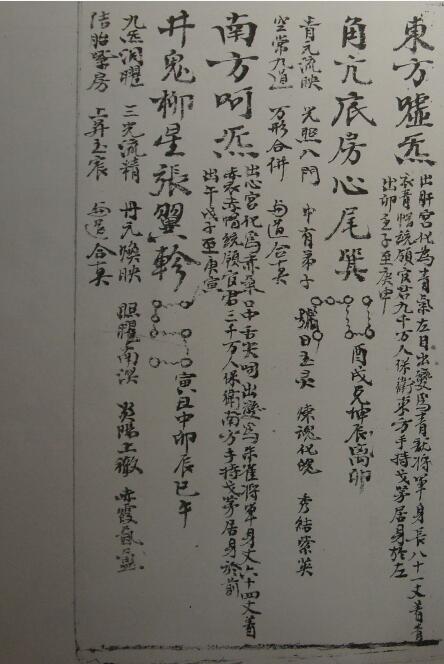 東方噓炁
出肝宮化為青氣左目出變為青龍將軍身長八十一丈青首
衣青幘統領官君九千万人保衛東方手持戈茅居身於左
出卯壬子至庚申
角亢底房心尾箕
酉戌兄坤辰离卯
青元流映 光照八門 中有弟子 日玉灵 煉魂化魄 秀結紫英
空常九道 万形合併 与道合真
南方呵炁
出心宮化為赤氣口中舌尖呵出變為朱雀將軍身丈六十四丈着
衣赤幘統領官君三千万人保衛南方手持戈茅居身於前
出午戊子至庚寅
井鬼柳星張翼軫
寅丑申卯辰巳午
九炁洞曜 三光流精 丹元煥映 照耀南溟 炎陽上徹 赤霞
結胎紫房 上昇玉宸 与道合真